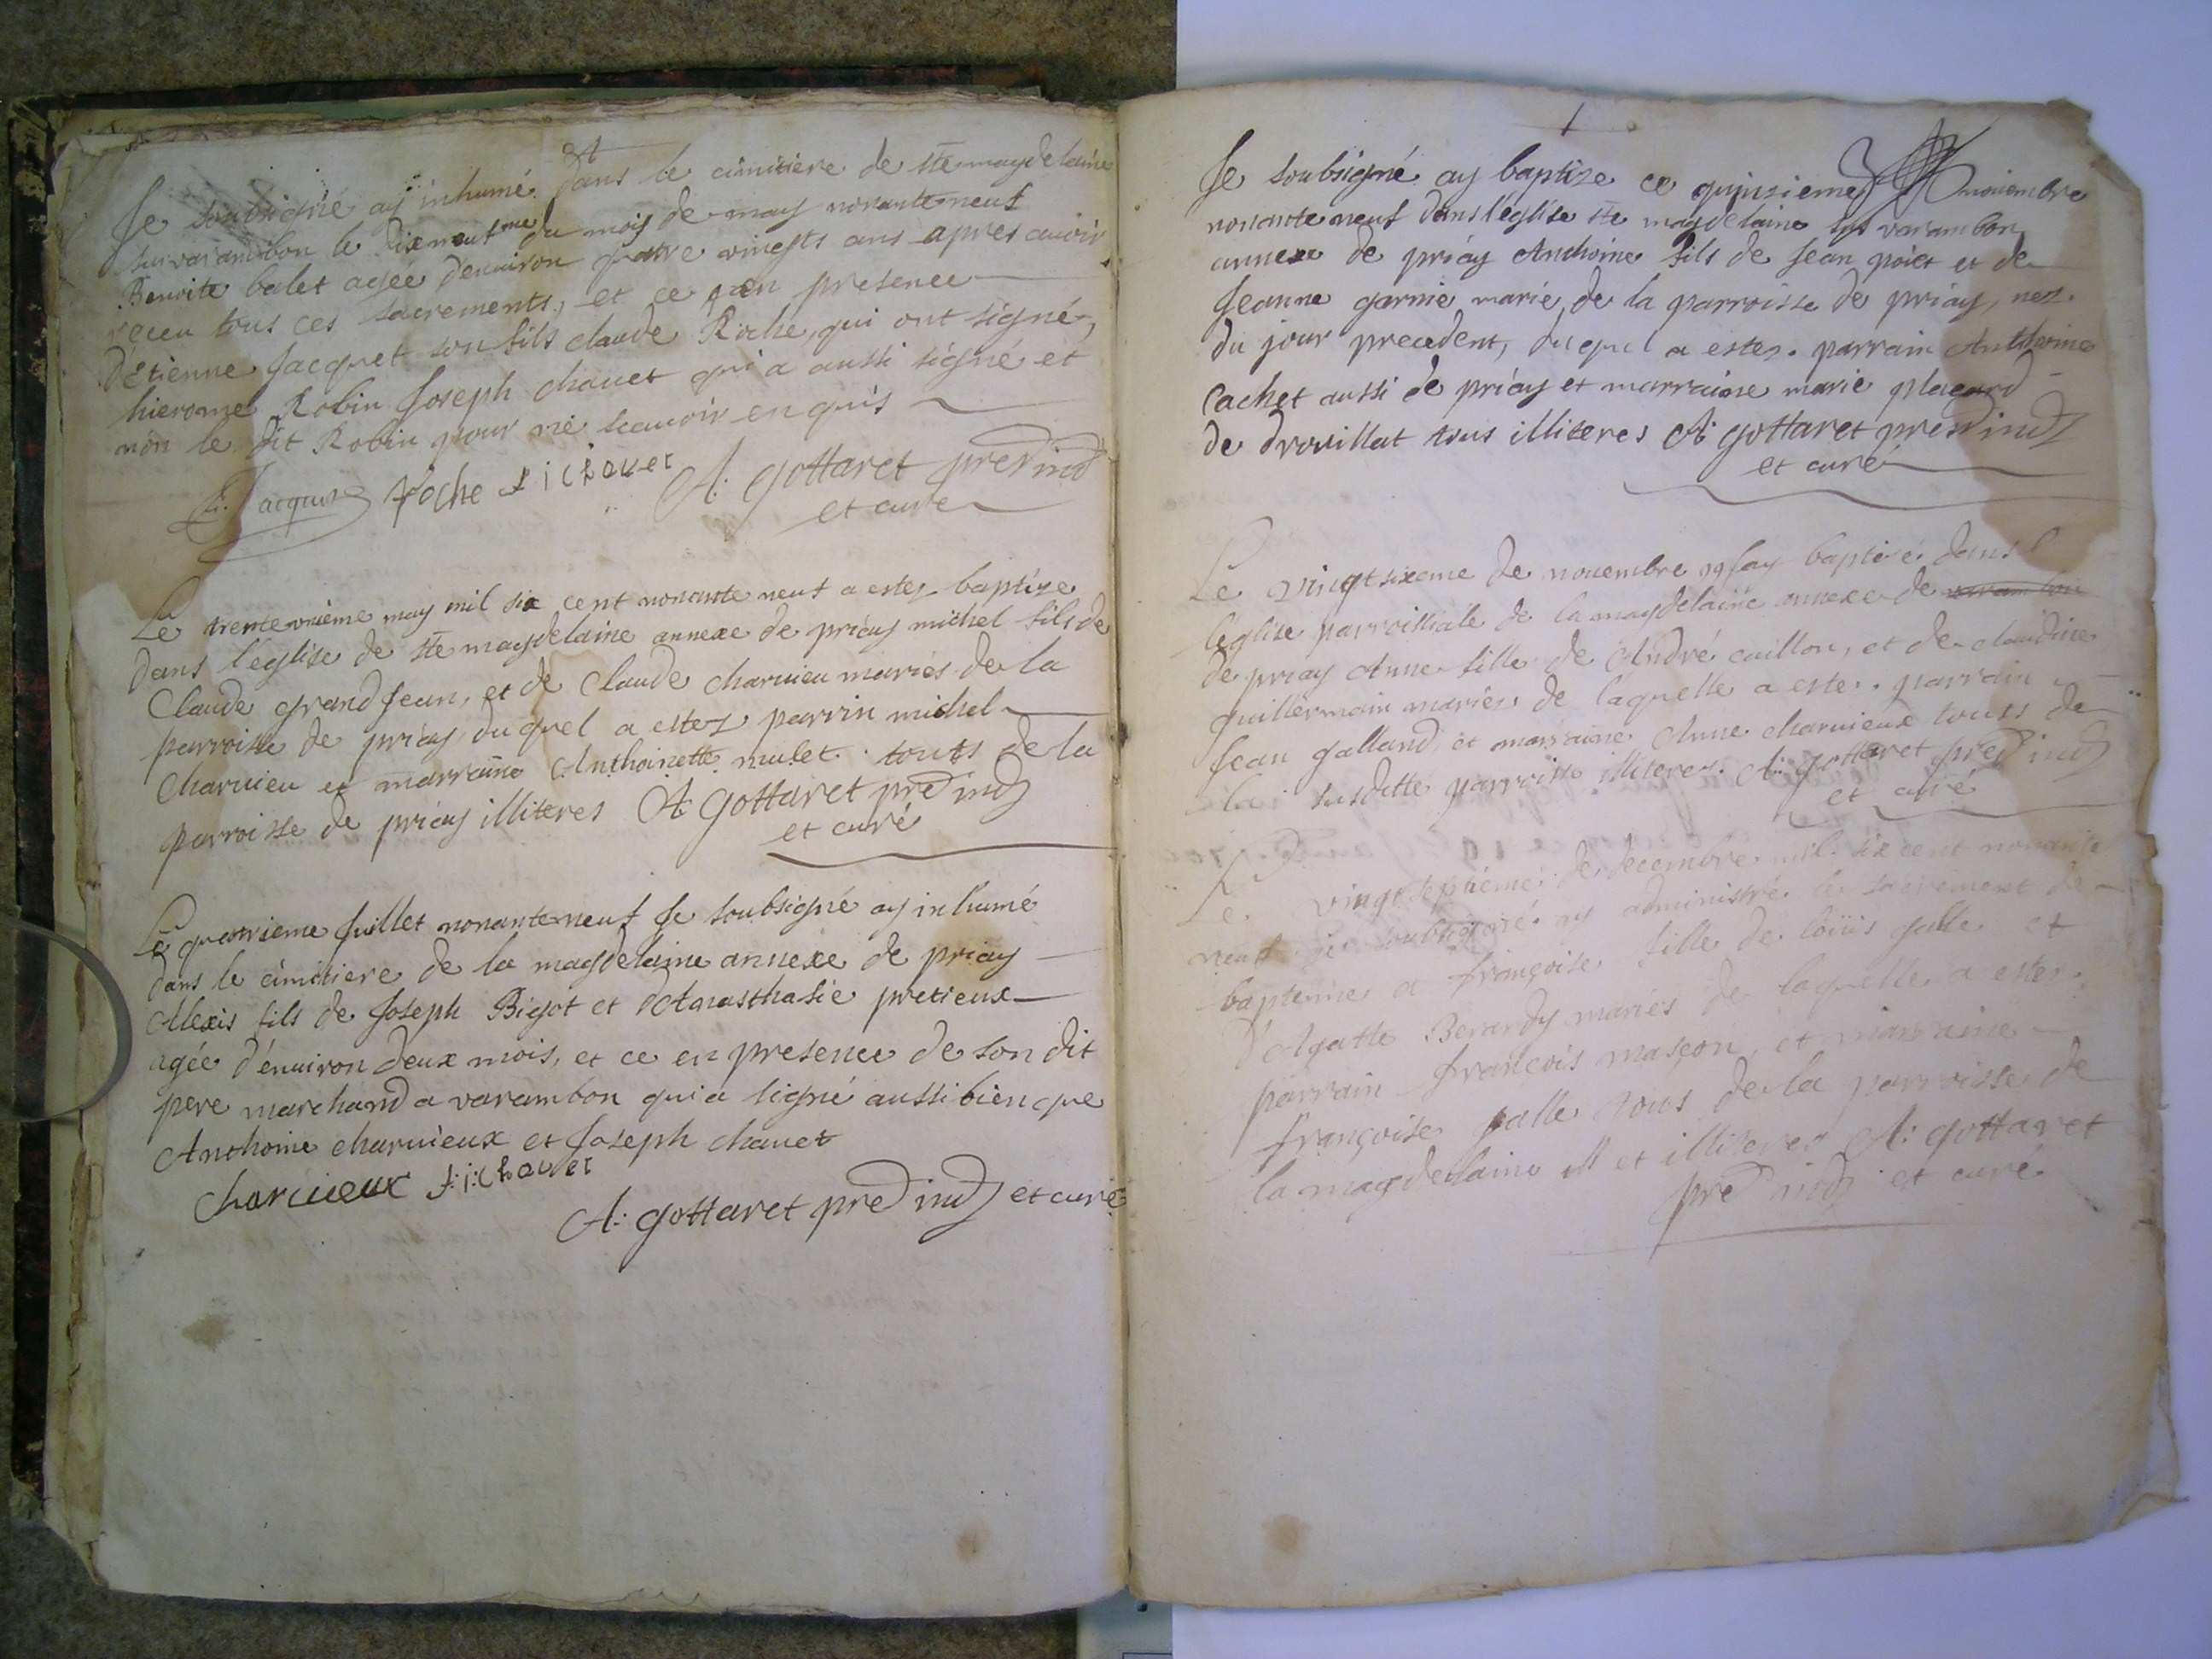 Je soubsigné ay inhumé dans le cimitiere de ste magdelaine
sur varambon le dixneufme du mois de may nonanteneuf
Benoite balet agée d'enuiron quatre vingts ans apres auoir
receu tous ces sacrements, et ce en presence
d'Etienne Jacquet son fils claude Roche, qui ont signé,
hierome Robin Joseph chauet qui a aussi signé et
non le dit Robin pour ne scauoir enquis
E. Jacquet Roche J i chauet A: gottaret pred ind
et curé
Le trente vnième may mil six cent nonante neuf a estez baptize
dans l'eglise de ste magdelaine annexe de priay michel fils de
Claude grand Jean, et de Claude charuieu mariés de la
parroisse de priay, duquel a estez parrin michel
charuieu et marraine Anthoinette mulet touts de la
parroisse de priay illiteres A gottaret pred ind
et curé
Le quatrieme Juillet nonanteneuf Je soubsigné ay inhumé
dans le cimitiere de la magdelaine annexe de priay
Alexis fils de Joseph Bigot et d'Anasthasie pretieux
agée d'énuiron deux mois, et ce en presence de son dit
pere marchand a varambon qui a signé aussi bien que
Anthoine charuieux et Joseph chauet
charuieux J:i:chauet
A: gottaret pred ind et curé
1
Je soubsigné ay baptize ce quinzieme nouembre
nonante neuf dans l'eglise ste magdelaine sus varambon
annexe de priay Anthoine fils de Jean poiet et de
Jeanne garnie marie de la parroisse de priay, nez
du jour precedent, duquel a estez parrain Anthoine
Cachet aussi de priay et marraine marie plagard
de drouillat tous illiteres A: gottaret pred ind
et curé
Le vingtsixeme de nouembre 99 Jay baptizé dans
l'eglise parroissiale de la magdelaine annexe de varambon
de priay Anne fille de André cuillon, et de claudine
guillermain mariés de laquelle a este parrain
Jean galland et marraine Anne charuieux touts de
la susditte parroisse illiteres A: gottaret pred ind
et curé
Le vingtseptieme de decembre mil six cent nonante
neuf je soubsigné ay administré le sacrement de
baptesme a françoise fille de loüis galle et
d'Agathe Berardy mariés de laquelle a estez
parrain francois masçon, et marraine
françoise galle tous de la parroisse de
la magdelaine et illiteres A: gottaret
pred ind et curé